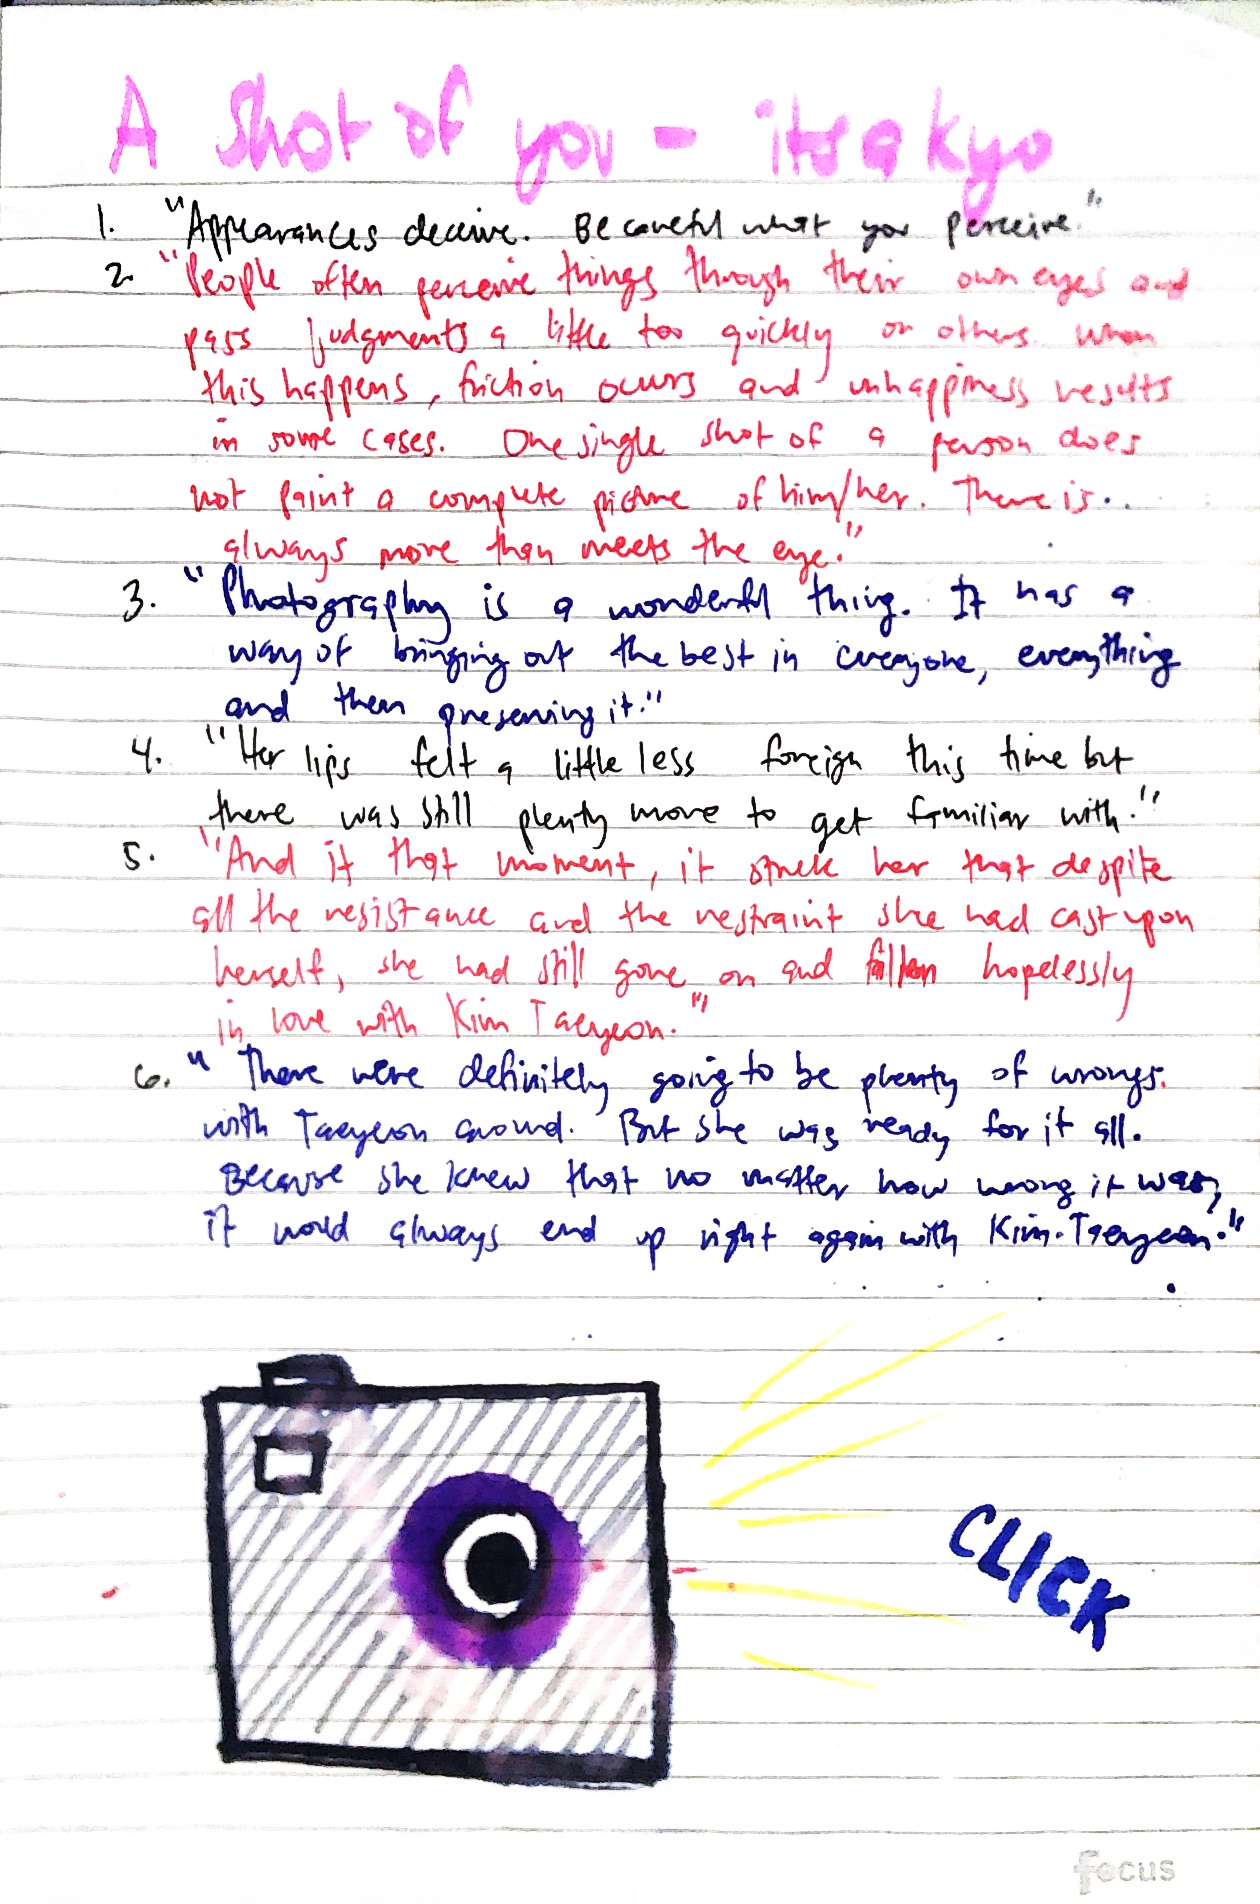 A shot of you - itsakyo
1. "Appearances deceive. Be careful what you perceive."
2. "People often perceive things through their own eyes and
pass judgments a little too quickly on others. When
this happens, friction occurs and unhappiness results
in some cases. One single shot of a person does
not paint a complete picture of him/her. There is..
always more than meets the eye."
3. "Photography is a wonderful thing. It has a
way of bringing out the best in everyone, everything
and then preserving it."
4. "Her lips felt a little less foreign this time but
there was still plenty more to get familiar with."
5. "And it that moment, it struck her that despite
all the resistance and the restraint she had cast upon
herself, she had still gone on and fallen hopelessly
in love with Kim Taeyeon."
6. "There were definitely going to be plenty of wrongs.
with Taeyeon around. But she was ready for it all.
Because she knew that no matter how wrong it was,
it would always end up right again with Kim Taeyeon."
CLICK
focus